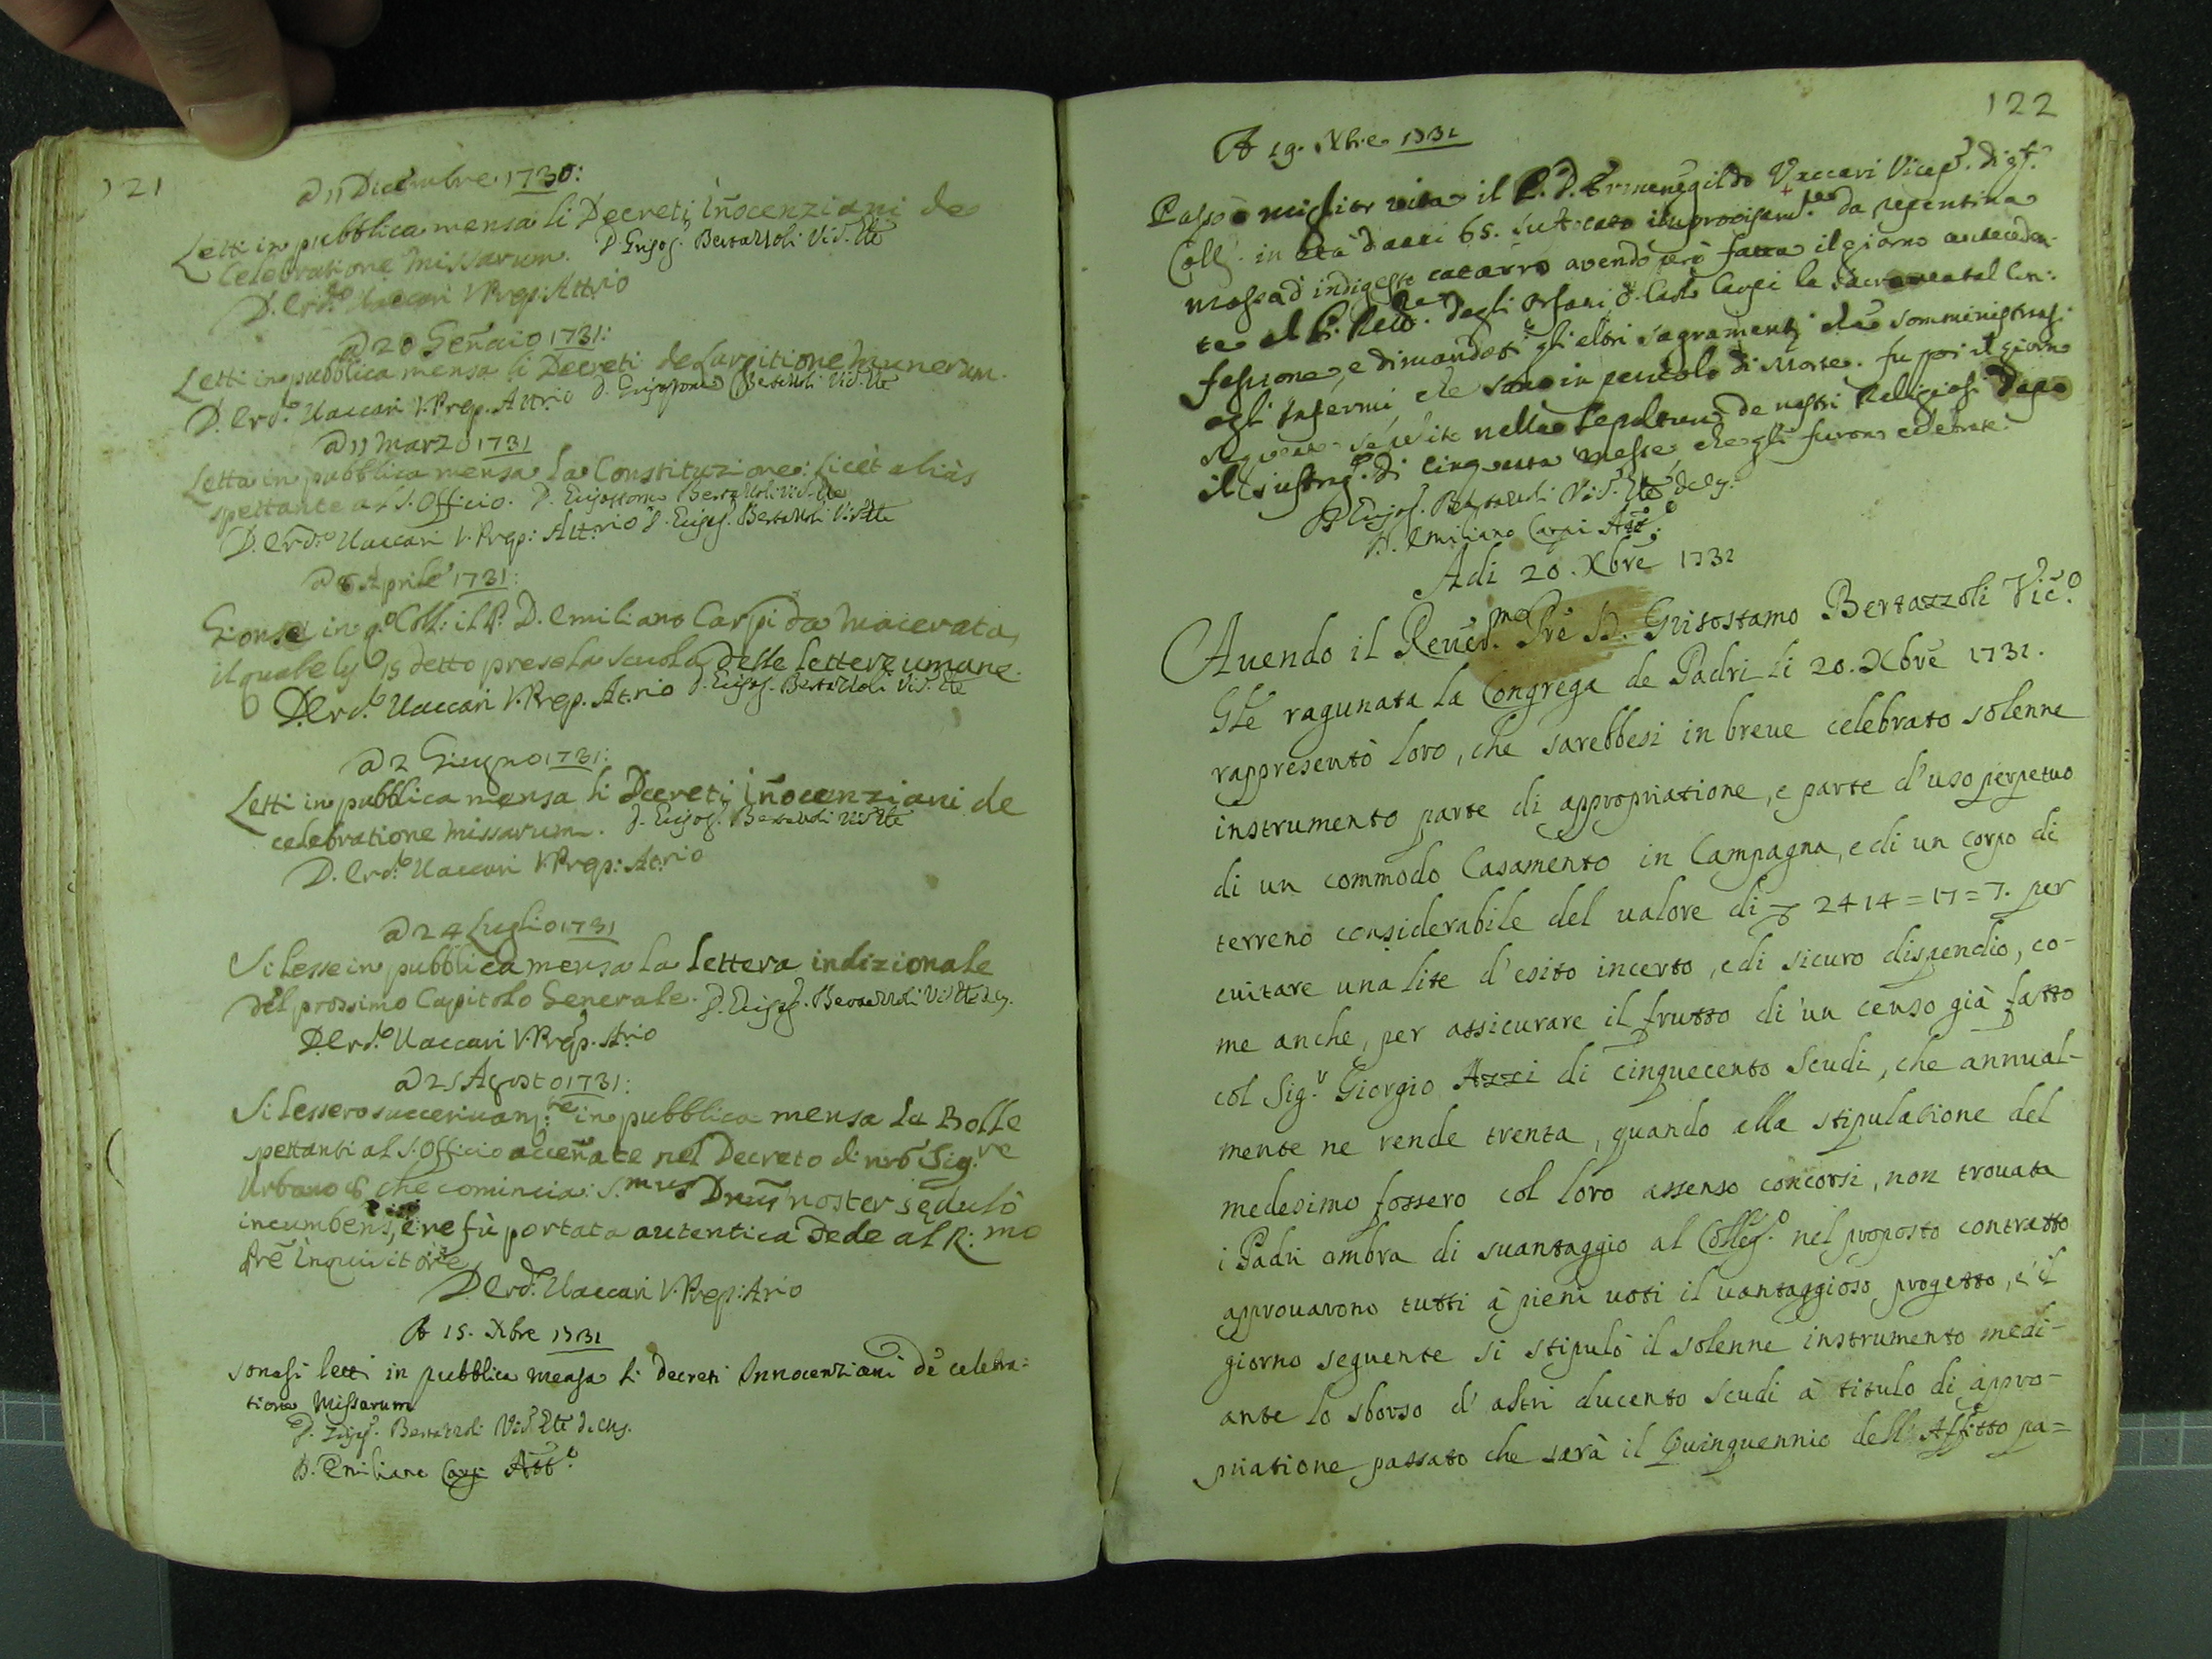 121
a 11 Dicembre 1730:
Letti in pubblica mensa li Decreti Iñocenziani de
celebratione missarum. D. Grisos. Bertazzoli Vis. Gle
D. Erd.o Uaccari V. Prep: Att.rio
a 20 Geñaio 1731:
Letti in pubblica mensa li Decreti de Largitione munerum.
D. Erd.o Uaccari V. Prep. Att.rio D. Grisostomo Bertazzoli Vis. Gle
a 11 Marzo 1731
Letta in pubblica mensa la Constituzione: licèt aliàs
spettante al S. Officio. D. Grisostomo Bertazzoli Vis. Gle
D. Erd.o Uaccari V. Prep: Att.rio D. Grisos. Bertazzoli Vis. Gle
a 8 Aprile 1731:
Gionse in q.o Coll: il P. D. Emiliano Carpi da Macerata,
il quale li 15 detto prese la scuola delle lettere umane.
D. Erd.o Uaccari V. Prep. At.rio D. Grisos. Bertazzoli Vis. Gle
a 2 Giugno 1731:
Letti in pubblica mensa li Decreti Iñocenziani de
celebratione missarum. D. Grisos. Bertazzoli Vis. Gle
D. Erd.o Uaccari V. Prep: At.rio
a 24 Luglio 1731
Si lesse in pubblica mensa la lettera indizionale
del prossimo Capitolo Generale. D. Grisos. Bertazzoli Vis. Gle
D. Erd.o Uaccari V. Prep. At.rio
a 25 Agosto 1731:
Si lessero successiuam.te in pubblica mensa le Bolle
spettanti al S. Officio acceñate nel Decreto di nro Sig.re
Urbano 8 che comincia: S.mus Dnus noster sedulò
incumbens, e ne fù portata autentica Fede al R:mo
Pre Inquisitore
D. Erd.o Uaccari V. Prep: At.rio
A 15. Xbre 1731
Sonosi letti in pubblica mensa li Decreti Innocenziani de celebra-
tione Missarum
D. Grisos. Bertazzoli Vis. Gle
D. Emiliano Carpi Att.o
122
A 19. Xbre 1731
Passò a miglior vita il P. D. Ermenegildo Vaccari Vicep. di q.to
Coll. in età d'anni 65. suffocato improvisam.te da repentina
mossa d'indigesto catarro avendo però fatta il giorno anteceden-
te al P. degli Orfani la sacramental Con-
fessione, e dimandati gli altri sagramenti che somministransi
agli Infermi che sono in pericolo di Morte. fu poi il giorno
seguente nella sepoltura de nostri Religiosi dopo
il suffrag.o di cinquanta messe che gli furono celebrate.
D. Grisos. Bertazzoli Vis. Gle
D. Emiliano Carpi Att.o
Adi 20. Xbre 1731
Auendo il Reuer.mo Pre D. Grisostamo Bertazzoli Vic.o
Gle ragunata la Congrega de Padri li 20. Xbre 1731.
rappresentò loro, che sarebbesi in breue celebrato solenne
instrumento parte di appropriatione, e parte d'uso perpetuo
di un commodo Casamento in Campagna, e di un corpo di
terreno considerabile del ualore di 2414 = 17 = 7. per
euitare una lite d'esito incerto, e di sicuro dispendio, co-
me anche, per assicurare il frutto di un censo già fatto
col Sig.r Giorgio Azzi di cinquecento Scudi, che annual-
mente ne rende trenta, quando alla stipulatione del
medesimo fossero col loro assenso concorsi, non trouata
i Padri ombra di suantaggio al Colleg.o nel proposto contratto
approuarono tutti à pieni uoti il uantaggioso progetto, e il
giorno seguente si stipulò il solenne instrumento medi-
ante lo sborso d'altri ducento scudi à titulo di appro-
priatione passato che sarà il Quinquennio dell'Affitto pa=